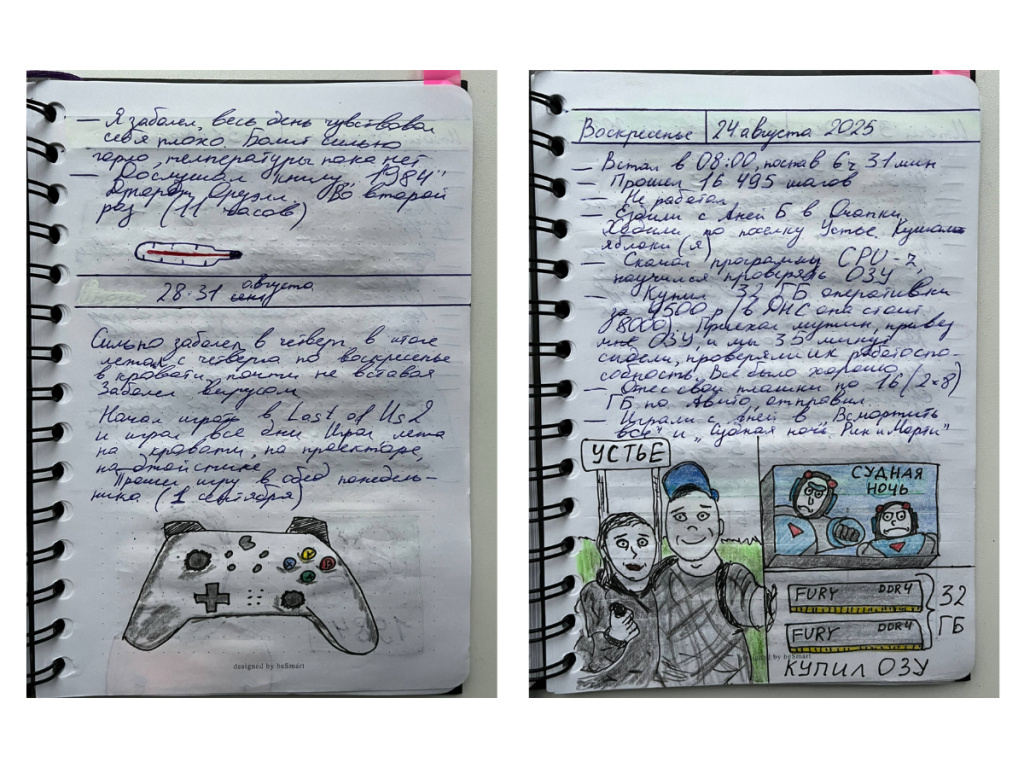 — Я заболел, весь день чувствовал
себя плохо. Болит сильно
горло, температуры пока нет
— Дослушал книгу "1984"
Джордж Оруэлл. Во второй
раз (11 часов)
28-31 августа
Сильно заболел в четверг в итоге
лежал с четверга по воскресенье
в кровати, почти не вставая
Заболел вирусом
Начал играть в Last of Us 2
и играл все дни. Играл лежа
на кровати, на проекторе,
на
Прошел игру в обед понедель-
ника (1 сентября)
designed by beSmart
Воскресенье 24 августа 2025
— Встал в 08:00, поспав 6ч 31 мин
— Прошел 16 495 шагов
— Не работал
— Ездили с Аней Б в Очапки,
Ходили по посёлку Устье. Кушал
яблоки (я)
— Скачал программу CPU-Z,
научился проверять ОЗУ
— Купил 32 ГБ оперативки
за 4500 р (в ДНС она стоит
8000). Приехал мужик, привез
мне ОЗУ, и мы 35 минут
сидели, проверяли их работоспо-
собность. Все было хорошо
— Отнес свои плашки по 16 (2×8)
ГБ по Авито, отправил.
— Играли с Аней в "Всмортить
все" и "Судная ночь Рик и Морти"
УСТЬЕ
СУДНАЯ
НОЧЬ
FURY DDR4
FURY DDR4
32
ГБ
by beSmart
КУПИЛ ОЗУ